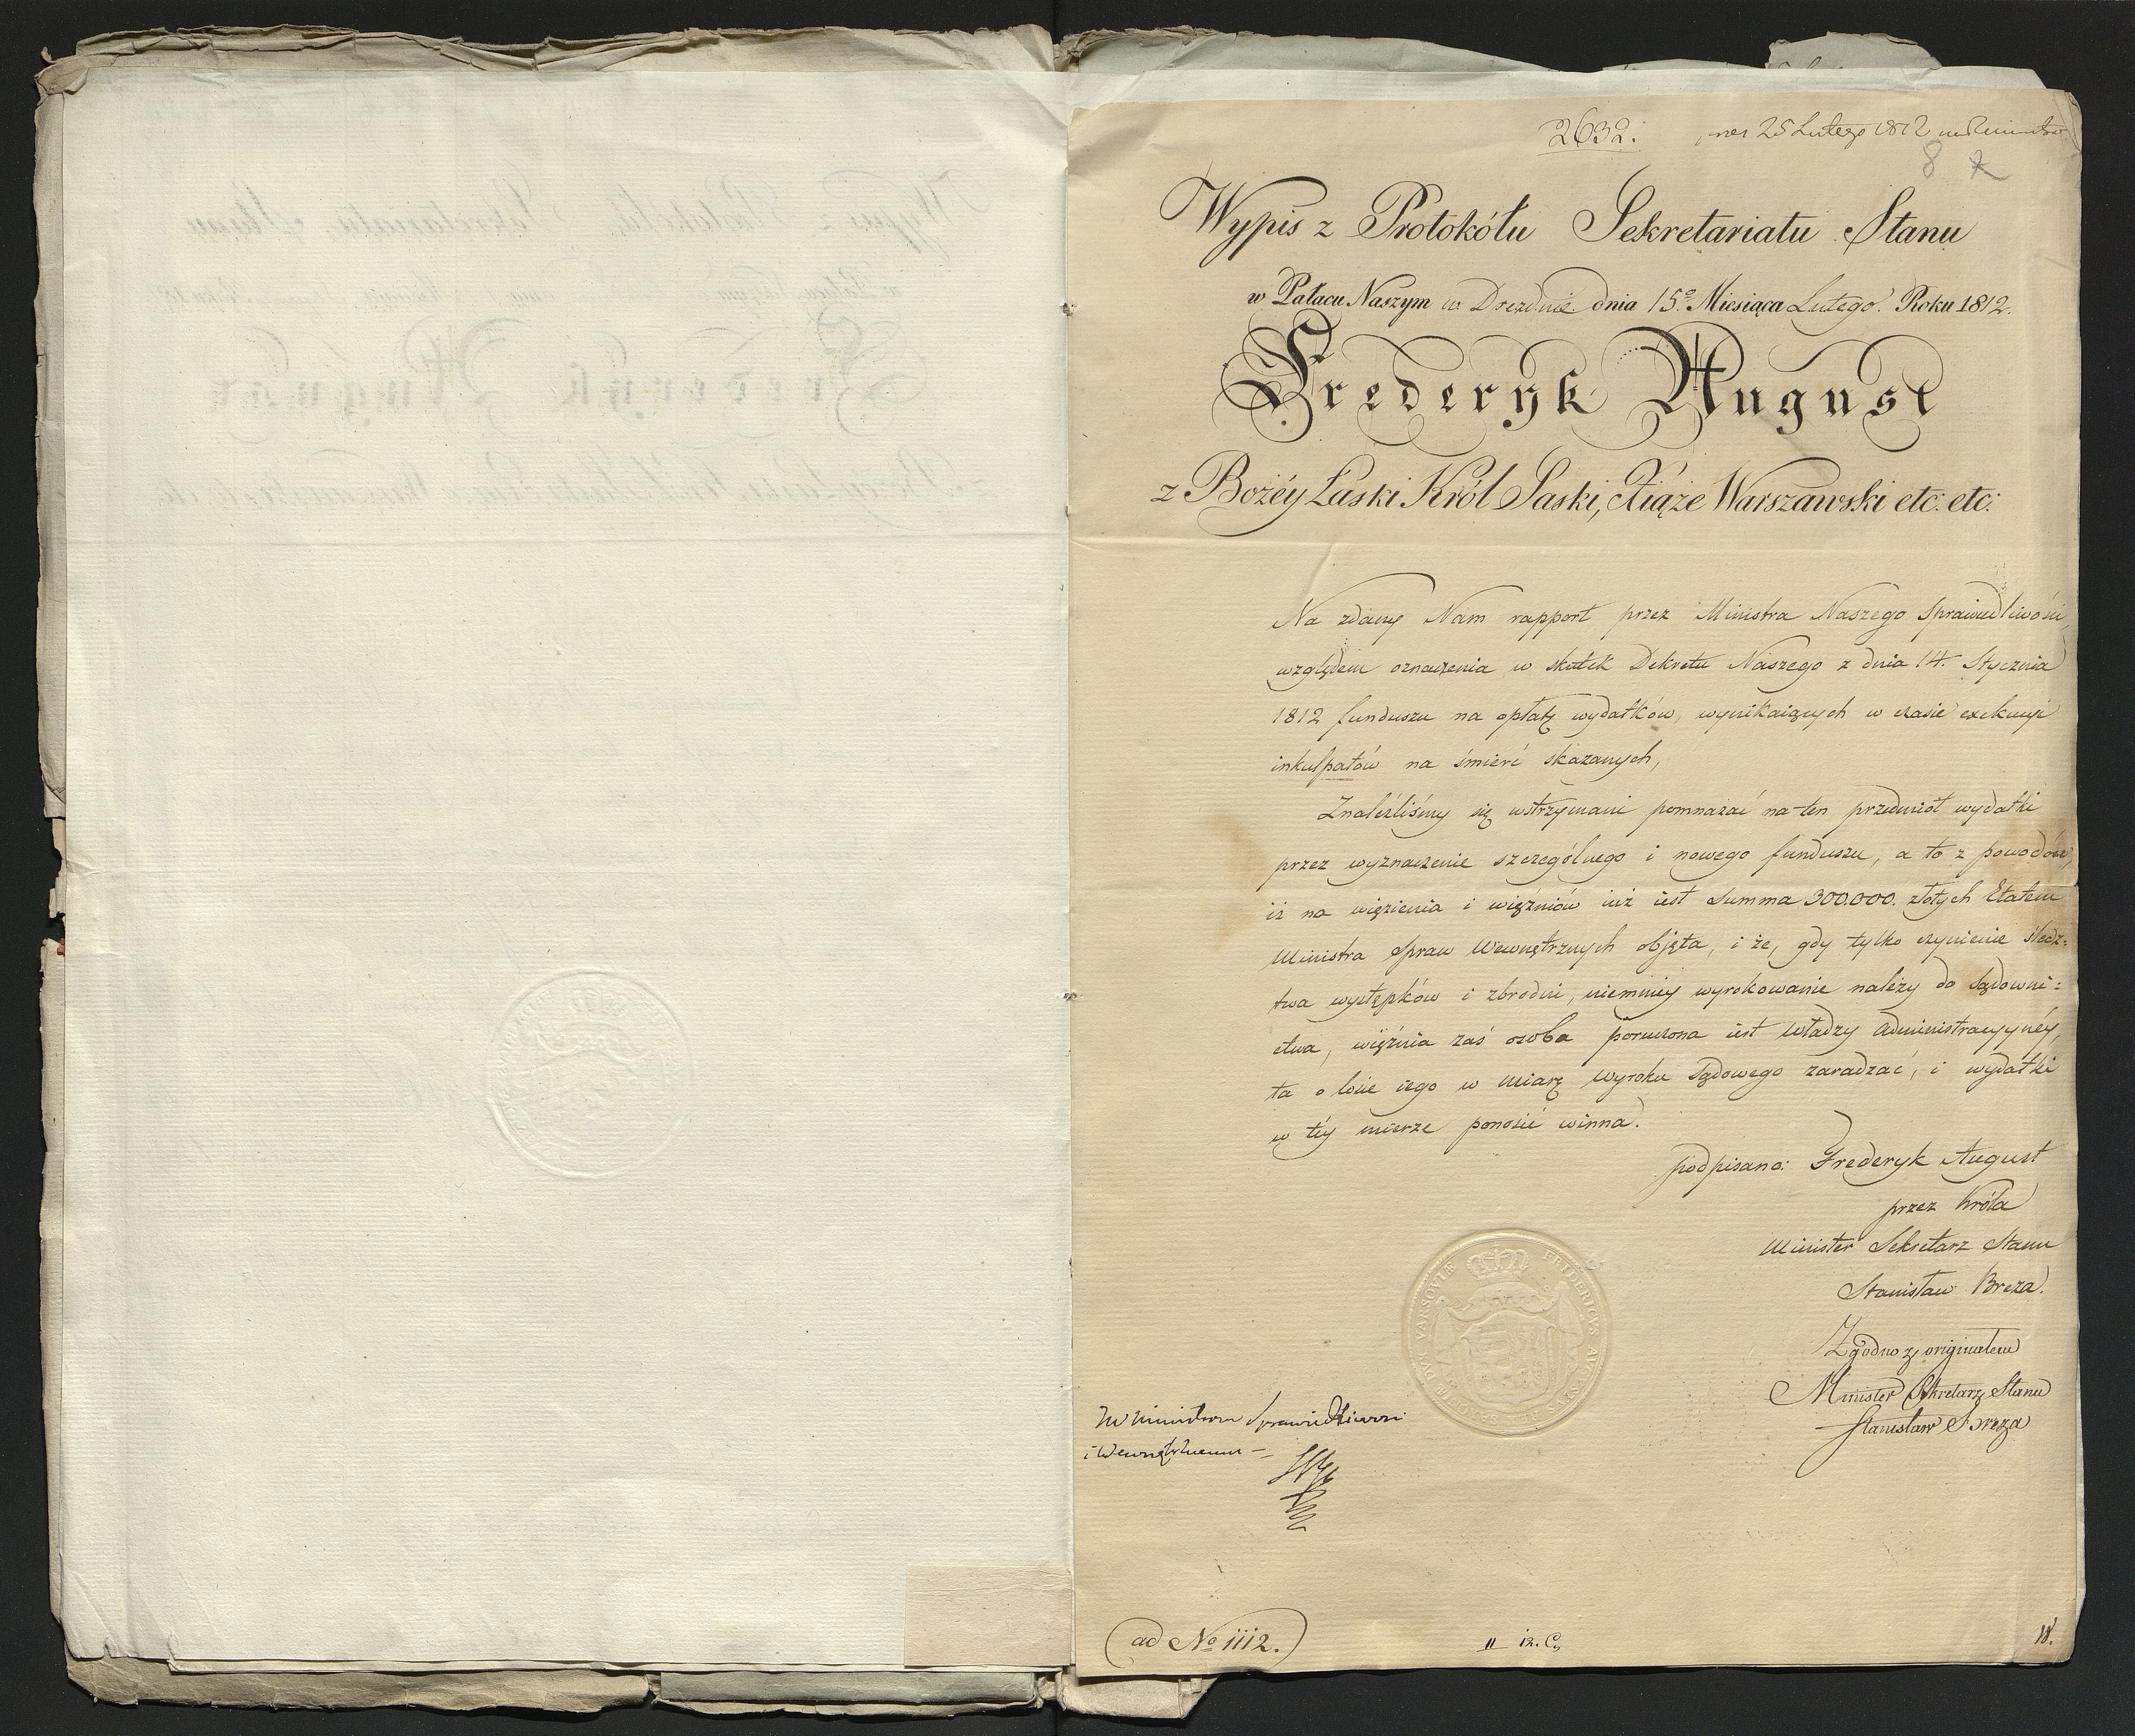 2632.
25 Lutego 1812
8
Wypis z Protokółu Sekretariatu Stanu
w Pałacu Naszym w Dreznie dnia 15º Miesiąca Lutego. Roku 1812.
Frederyk August
z Bożéy Łaski Król Saski, Xiąże Warszawski etc: etc:
Na zdany Nam rapport przez Ministra Naszego Sprawiedliwości,
względem oznaczenia w skutek Dekretu Naszego z dnia 14. Stycznia
1812 funduszu na opłatę wydatków, wynikaiących w czasie exekucyi
inkulpatów na śmierć skazanych,
Znaleźliśmy się wstrzymani pomnażać na ten przedmiot wydatki
przez wyznaczenie szczególnego i nowego funduszu, a to z powodów,
iż na więzienia i więźniów iuż iest Summa 300.000. złotych Etatem
Ministra Spraw Wewnętrznych objęta, i że, gdy tylko czynienie śledz=
twa występków i zbrodni, niemniey wyrokowanie należy do Sądowni=
ctwa, więźnia zaś osoba poruczona iest Władzy Administracyynéy,
ta o losie iego w miarę Wyroku Sądowego zaradzać, i wydatki
w téy mierze ponosić winna.
podpisano: Frederyk August
przez Króla
Minister Sekretarz Stanu
Stanisław Breza.
Zgodno z originałem
Minister Sekretarz Stanu
Stanisław Breza
FRIDERICVS AVGVSTVS DVX VARSOVIÆ
Ministrom Sprawiedliwości
i Wewnętrznemu –
(ad No 1112.)